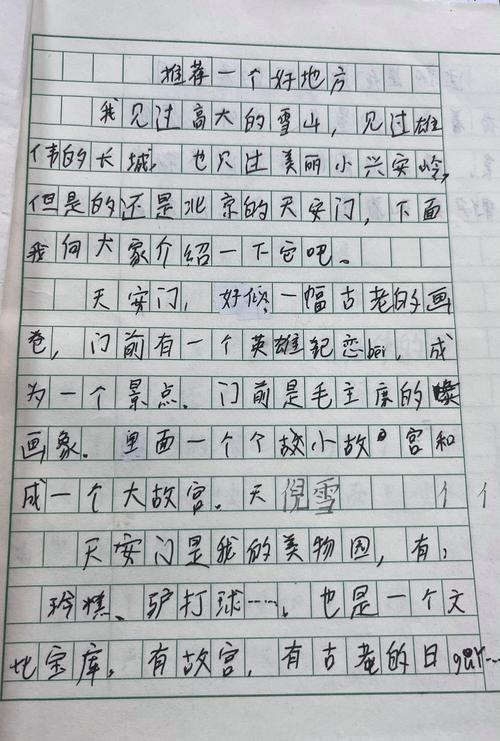 推荐一个好地方
我见过高大的雪山，见过雄
伟的长城，也见过美丽小兴安岭，
但是的还是北京的天安门，下面
我向大家介绍一下它吧。
天安门，好似一幅古老的画
卷，门前有一个英雄纪恋bei，成
为一个景点。门前是毛主席的
画象。里面一个个小故宫和
成一个大故宫。天倪雪
个个
天安门是我的美物园，有：
玲糕、驴打球……，也是一个文
地宝库，有故宫，有古老的日gui…